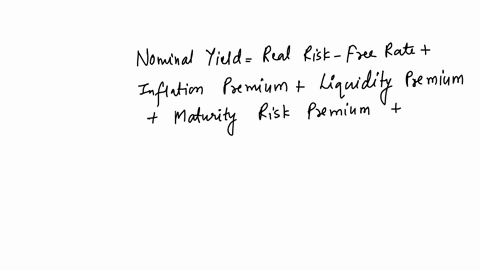 Nominal Yield = Real Risk-Free Rate +
Inflation Premium + Liquidity Premium
+ Maturity Risk Premium +